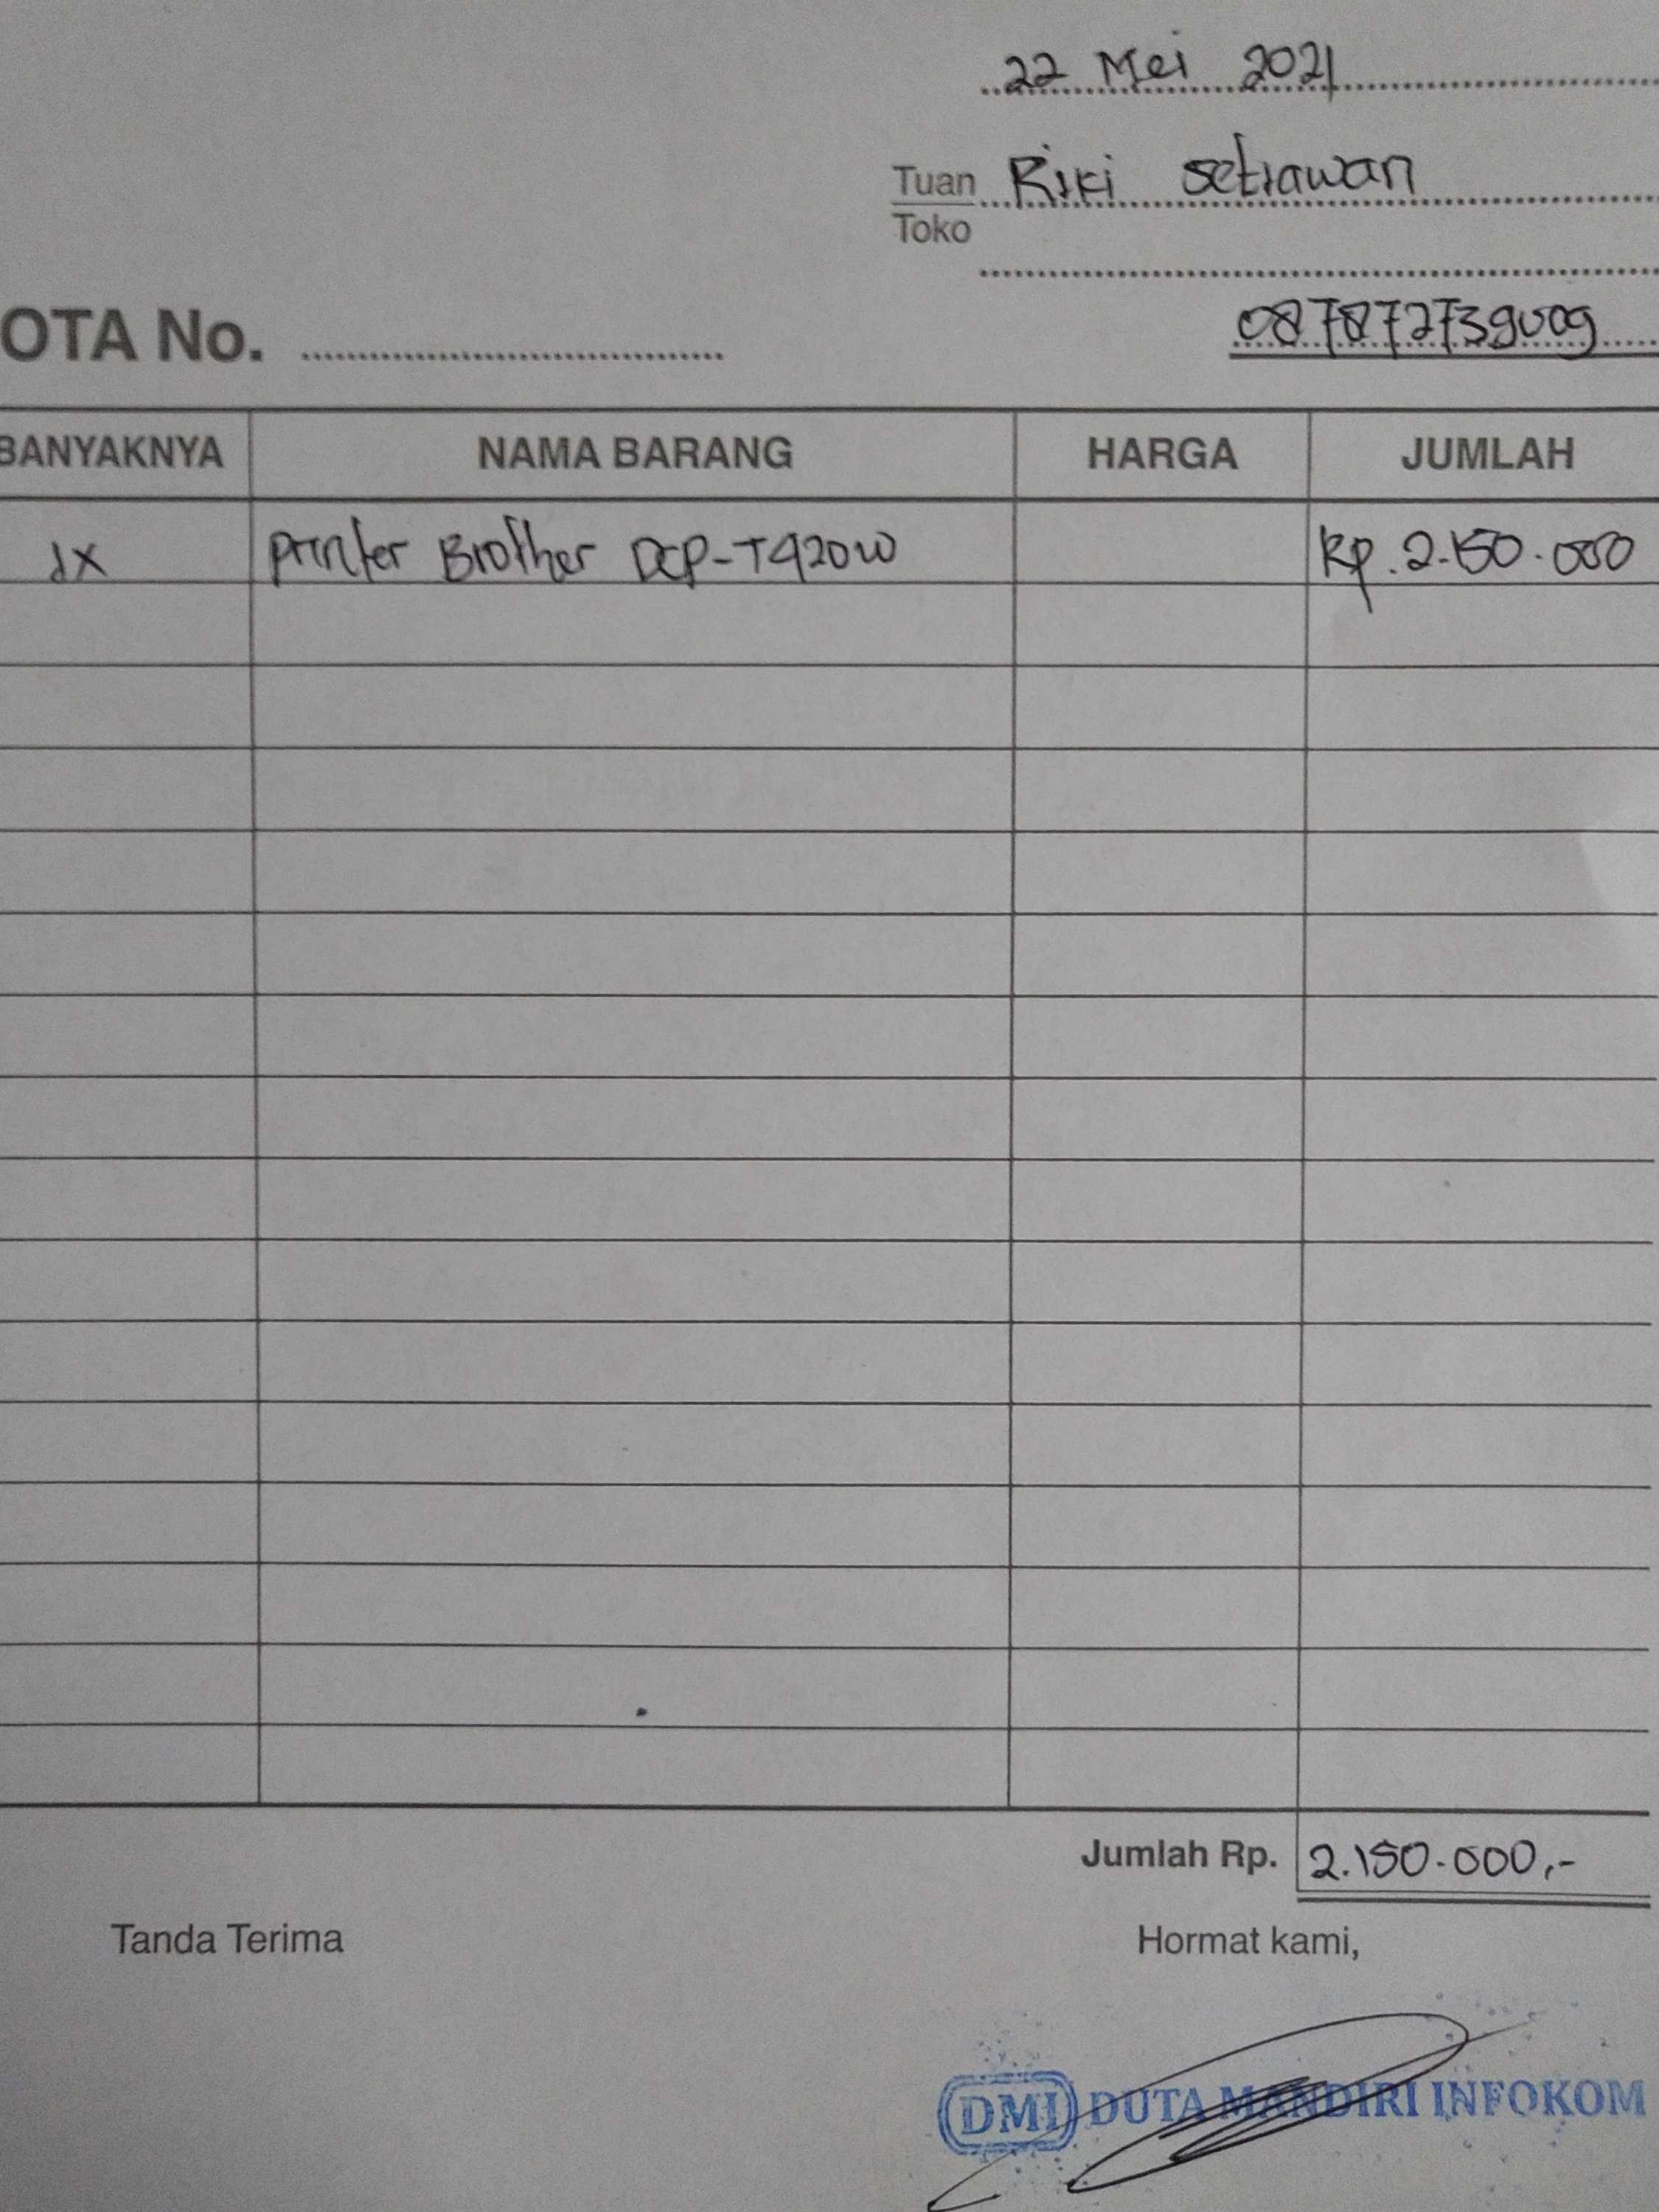 22 Mei 2021
Tuan Riki setiawan
Toko
OTA No.
087872739009
BANYAKNYA NAMA BARANG HARGA JUMLAH
1X Printer Brother DCP-T420W Rp. 2.150.000
Jumlah Rp. 2.150.000,-
Tanda Terima Hormat kami,
DMI DUTA MANDIRI INFOKOM